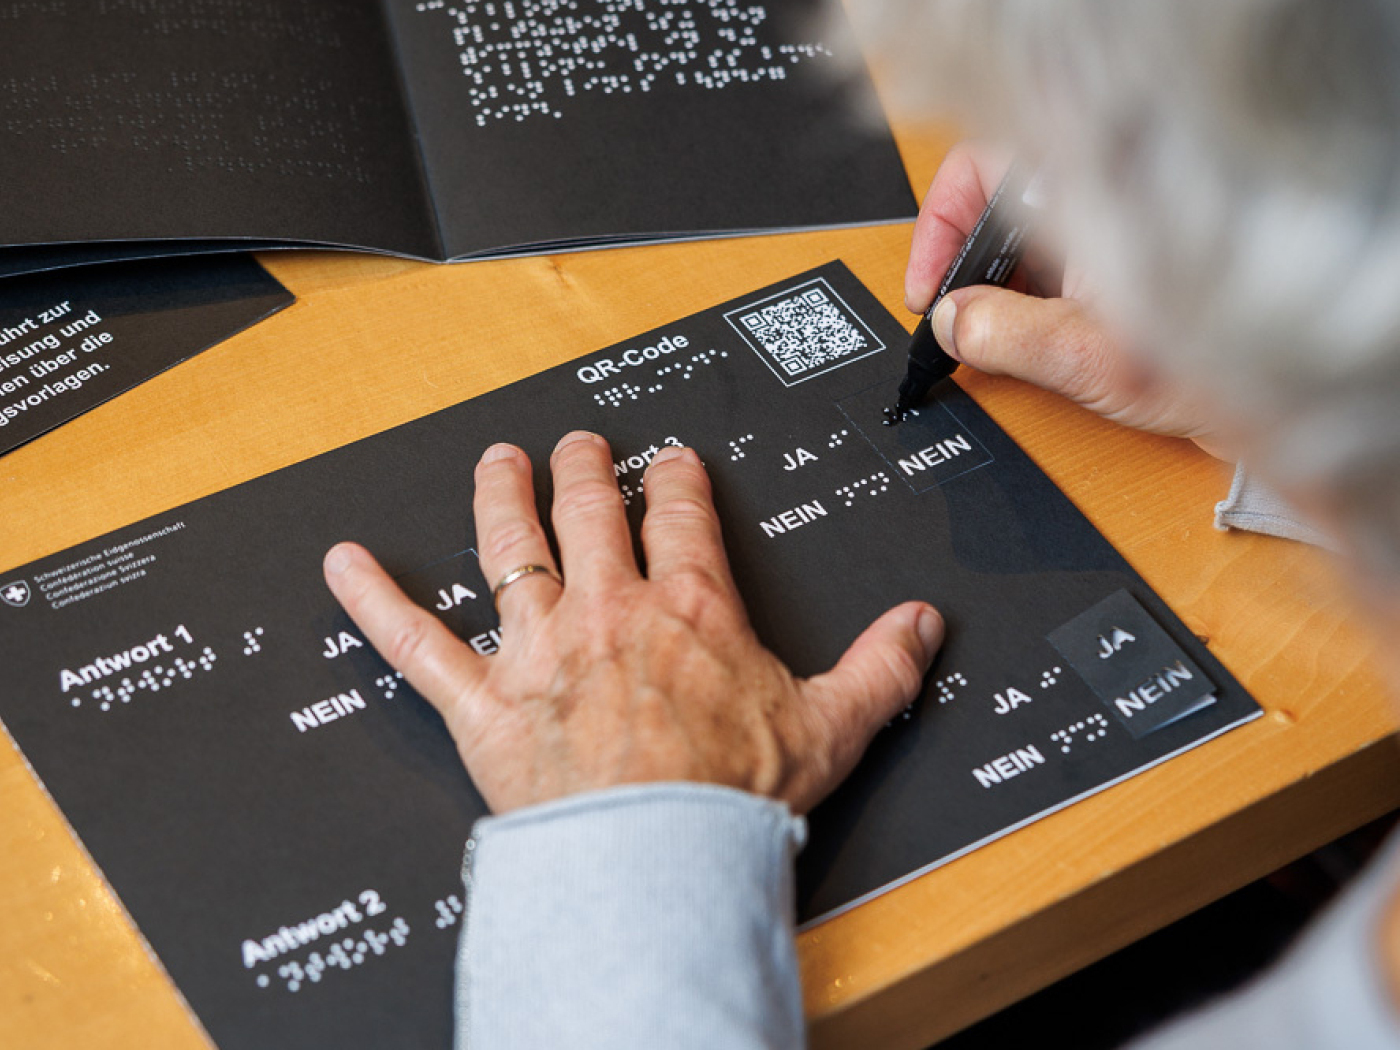 ührt zur
eisung und
en über die
gsvorlagen.
QR-Code
wort 3
JA
NEIN
NEIN
Schweizerische Eidgenossenschaft
Confédération suisse
Confederazione Svizzera
Confederaziun svizra
Antwort 1
JA
JA
NEIN
JA
JA
NEIN
NEIN
Antwort 2